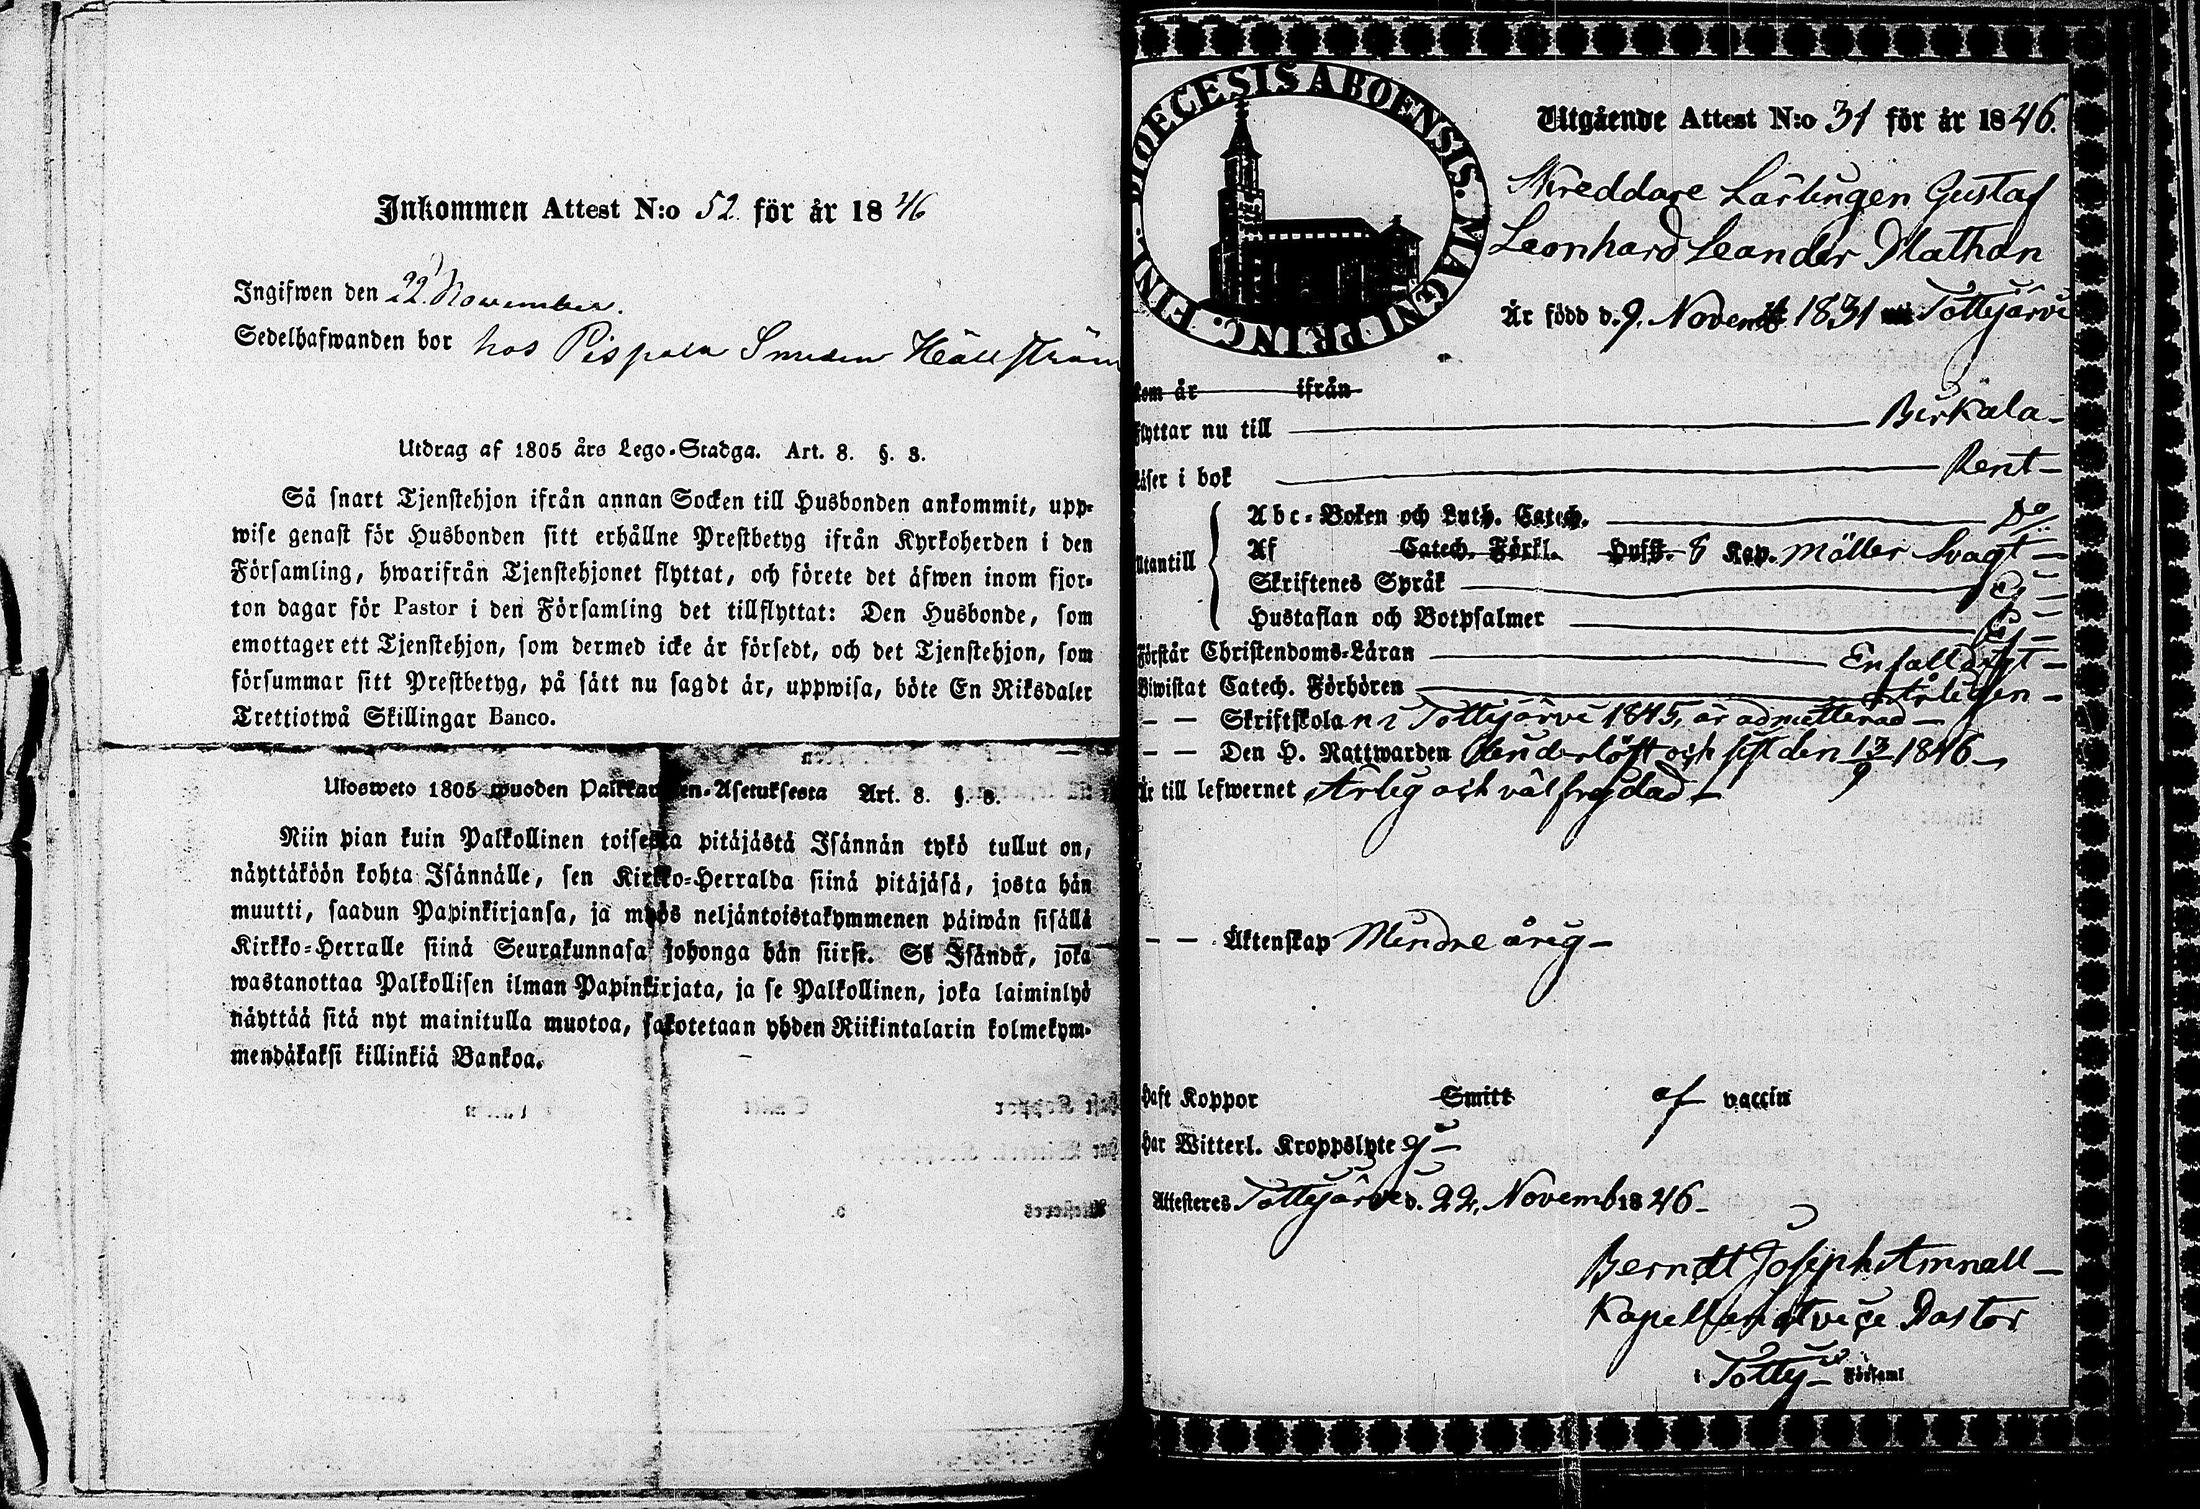 Inkommen Attest N:o 52 för år 1846
Ingifwen den 22 November.
Sedelhafwanden bor hos Pispala Smeden Hällström
Utdrag af 1805 års Lego-Stadga. Art. 8. §. 3.
Så snart Tjenstehjon ifrån annan Socken till Husbonden ankommit, upp-
wise genast för Husbonden sitt erhållne Prestbetyg ifrån Kyrkoherden i den
Församling, hwarifrån Tjenstehjonet flyttat, och förete det äfwen inom fjor-
ton dagar för Pastor i den Församling det tillflyttat: Den Husbonde, som
emottager ett Tjenstehjon, som dermed icke är försedt, och det Tjenstehjon, som
försummar sitt Prestbetyg, på sätt nu sagdt är, uppwisa, böte En Riksdaler
Trettiotwå Skillingar Banco.
Ulosweto 1805 wuoden Palkkausten-Asetuksesta Art. 8. §. 3.
Niin pian kuin Palkollinen toisesta pitäjästä Isännän tykö tullut on,
näyttäköön kohta Isännälle, sen Kirkko-Herralda siinä pitäjäsä, josta hän
muutti, saadun Papinkirjansa, ja myös neljäntoistakymmenen päiwän sisällä
Kirkko-Herralle siinä Seurakunnasa johonga hän siirsi. Se Isändä, joka
wastanottaa Palkollisen ilman Papinkirjata, ja se Palkollinen, joka laiminlyö
näyttää sitä nyt mainitulla muotoa, sakotetaan yhden Riikintalarin kolmekym-
mendäkaksi killinkiä Bankoa.
DIOECESIS ABOENSIS. MAGNI PRINC. FINL.
Utgående Attest N:o 31 för år 1846.
Skreddare Lärlingen Gustaf
Leonhard Leander Mathon
Är född d. 9. Novemb 1831 i Tottijärvi
kom år ifrån
flyttar nu till Birkala
läser i bok Rent
Utantill
Abc-Boken och Luth. Catech. Do
Af Catech. Förkl. Hufst. 8 Kap. Möller Svagt
Skriftenes Språk Ej
Hustaflan och Botpsalmer Ej
Förstår Christendoms-Läran Enfalldigt
Biwistat Catech. Förhören Årligen
— — Skriftskolan i Tottijärvi 1845, är admitterad
— — Den H. Nattwarden Oenderlöst och sist den 13/9 1846
Är till lefwernet Ärlig och välfrejdad
— — Äktenskap Minderårig
haft Koppor Smitt af vaccin
har Witterl. Kroppslyte Ej
Attesteres Tottijärvi d. 22, Novemb 1846
Berndt Joseph Amnall
Kapellan Pastor
i Tottij Församl